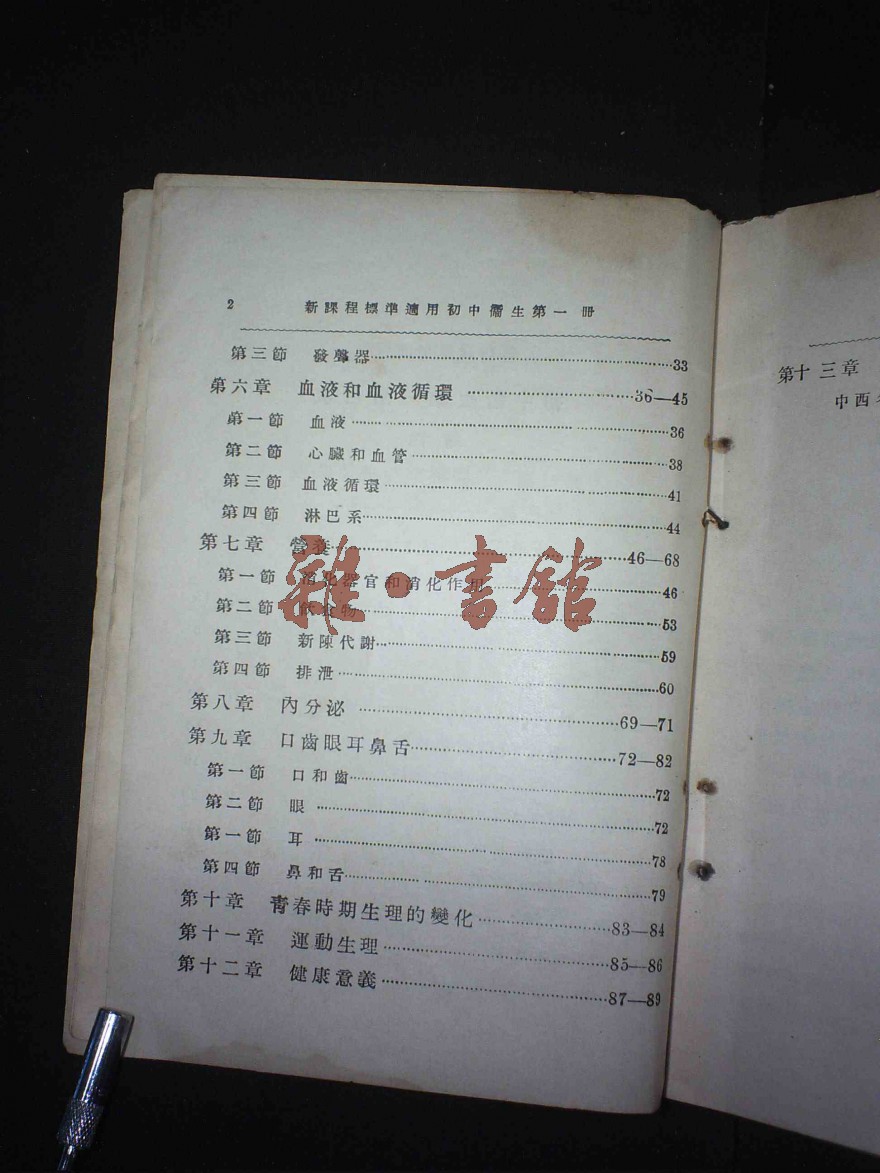 2 新課程標準適用初中衞生第一冊
第三節 發聲器……33
第六章 血液和血液循環……36—45
第一節 血液……36
第二節 心臟和血管……38
第三節 血液循環……41
第四節 淋巴系……44
第七章 營養……46—68
第一節 消化器官和消化作用……46
第二節 飲食物……53
第三節 新陳代謝……59
第四節 排泄……60
第八章 內分泌……69—71
第九章 口齒眼耳鼻舌……72—82
第一節 口和齒……72
第二節 眼……72
第一節 耳……78
第四節 鼻和舌……79
第十章 青春時期生理的變化……83—84
第十一章 運動生理……85—86
第十二章 健康意義……87—89
第十三章
中西
雜·書館